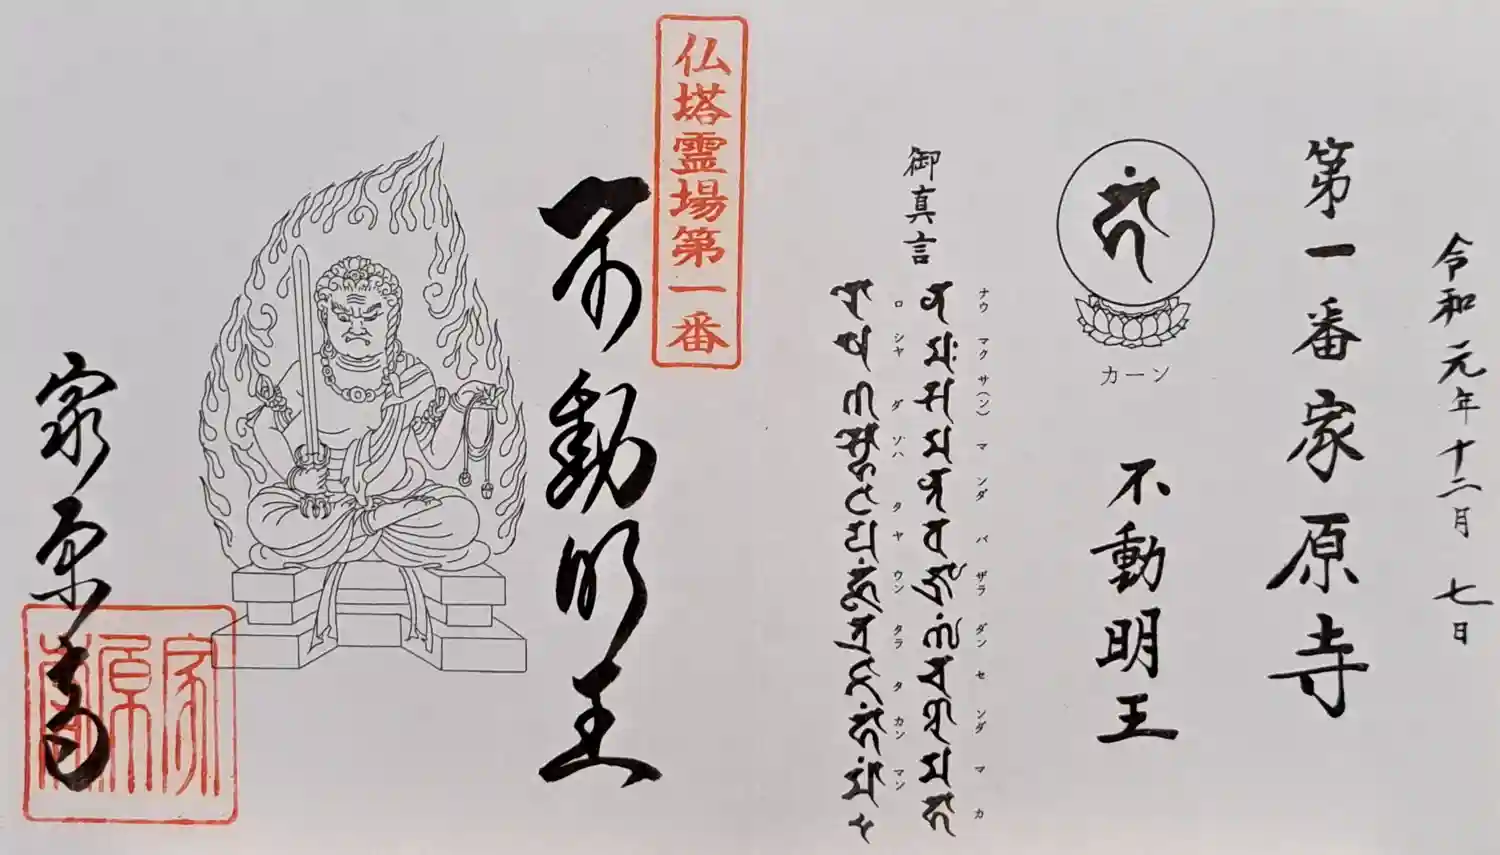 令和元年十二月七日
第一番家原寺
カーン
不動明王
御真言
ナウ マク サ(ン) マ ンダ バ ザラ ダン セ ンダ マ カ
ロ シャ ダ ソハ タ ヤ ウン タラ タ カン マン
仏塔霊場第一番
不動明王
家原寺
家原寺